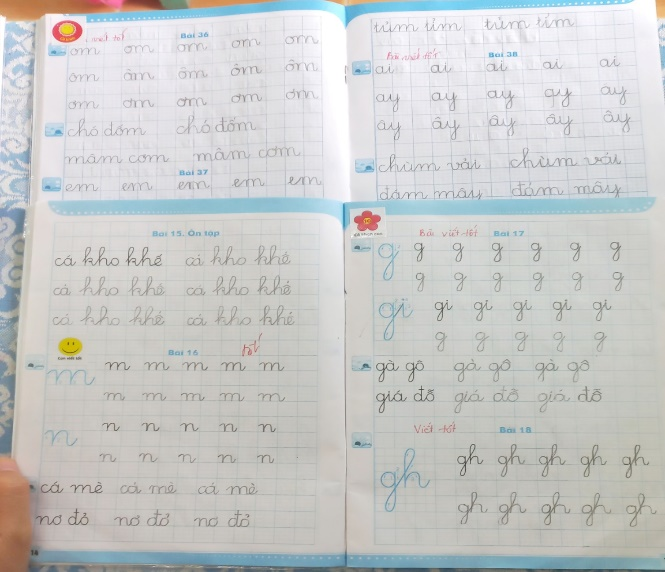 viết tốt Bài 36
om om om om om
ôm ôm ôm ôm ôm
ơm ơm ơm ơm ơm
chó đốm chó đốm
mâm cơm mâm cơm
Bài 37
em em em em em
tủm tỉm tủm tỉm
Bài viết tốt Bài 38
ai ai ai ai ai
ay ay ay ay ay
ây ây ây ây ây
chùm vải chùm vải
đám mây đám mây
Bài 15. Ôn tập
cá kho khế cá kho khế
cá kho khế cá kho khế
cá kho khế cá kho khế
Bài 16 tốt
m m m m m m
m m m m m
n n n n n n
n n n n n
cá mè cá mè cá mè
nơ đỏ nơ đỏ nơ đỏ
16
Bài viết tốt Bài 17
g g g g g g g
g g g g g g
gi gi gi gi gi gi
g g g g g
gà gô gà gô gà gô
giá đỗ giá đỗ giá đỗ
Viết tốt Bài 18
gh gh gh gh gh gh
gh gh gh gh gh